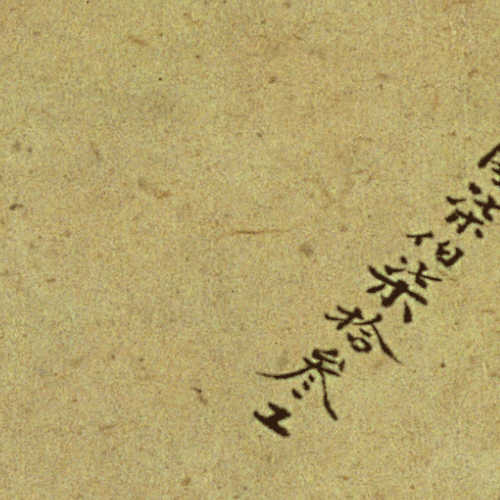 柒伯柒拾叁工